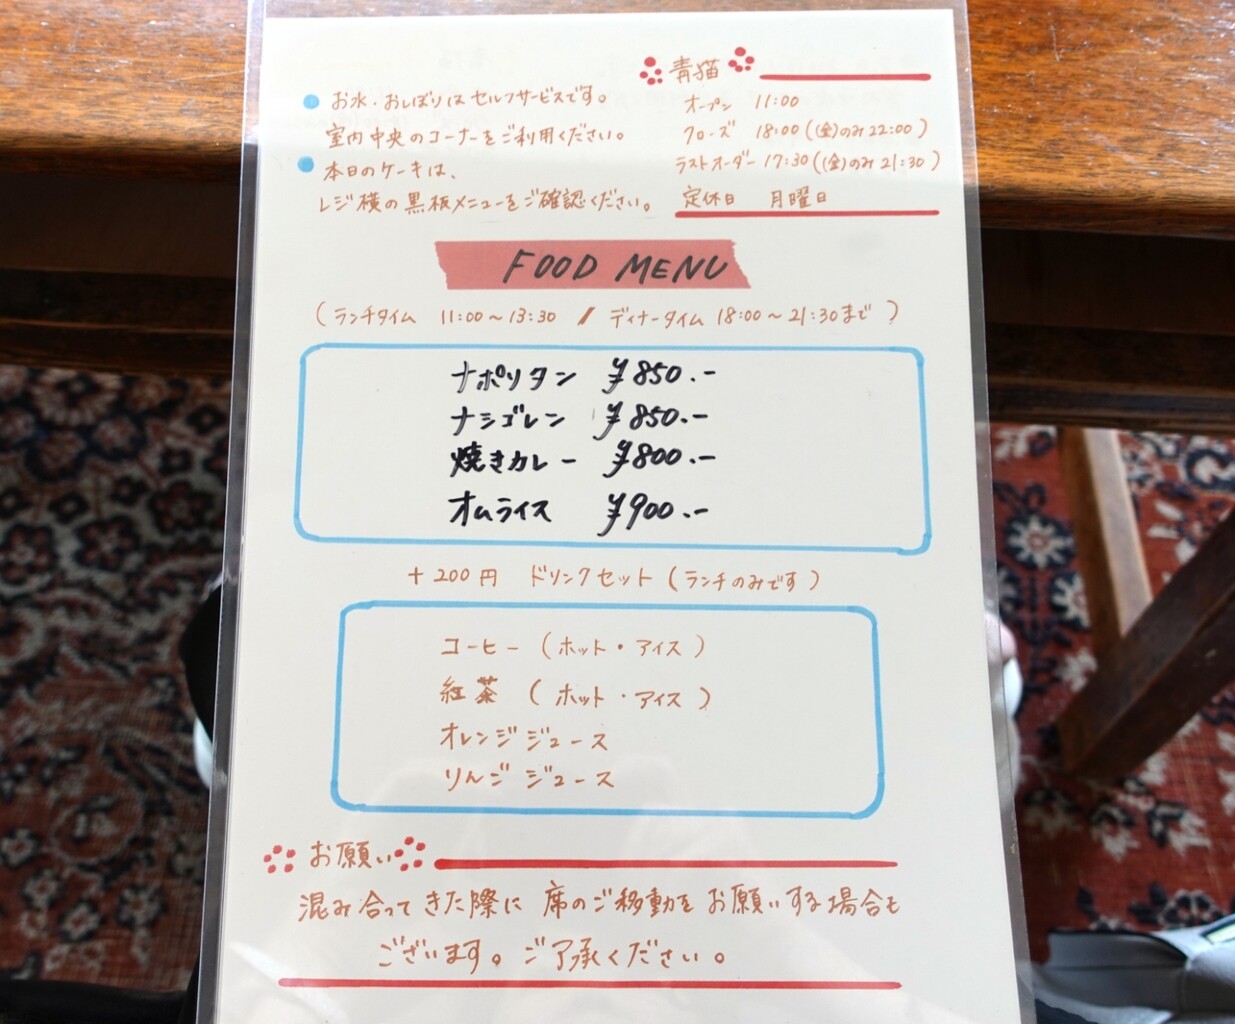 青猫
お水・おしぼりはセルフサービスです。
室内中央のコーナーをご利用ください。
本日のケーキは、
レジ横の黒板メニューをご確認ください。
オープン 11:00
クローズ 18:00((金)のみ22:00)
ラストオーダー 17:30((金)のみ21:30)
定休日 月曜日
FOOD MENU
(ランチタイム 11:00〜13:30 / ディナータイム 18:00〜21:30まで)
ナポリタン ¥850.-
ナシゴレン ¥850.-
焼きカレー ¥800.-
オムライス ¥900.-
+200円 ドリンクセット(ランチのみです)
コーヒー(ホット・アイス)
紅茶(ホット・アイス)
オレンジジュース
りんごジュース
お願い
混み合ってきた際に 席のご移動をお願いする場合も
ございます。ご了承ください。